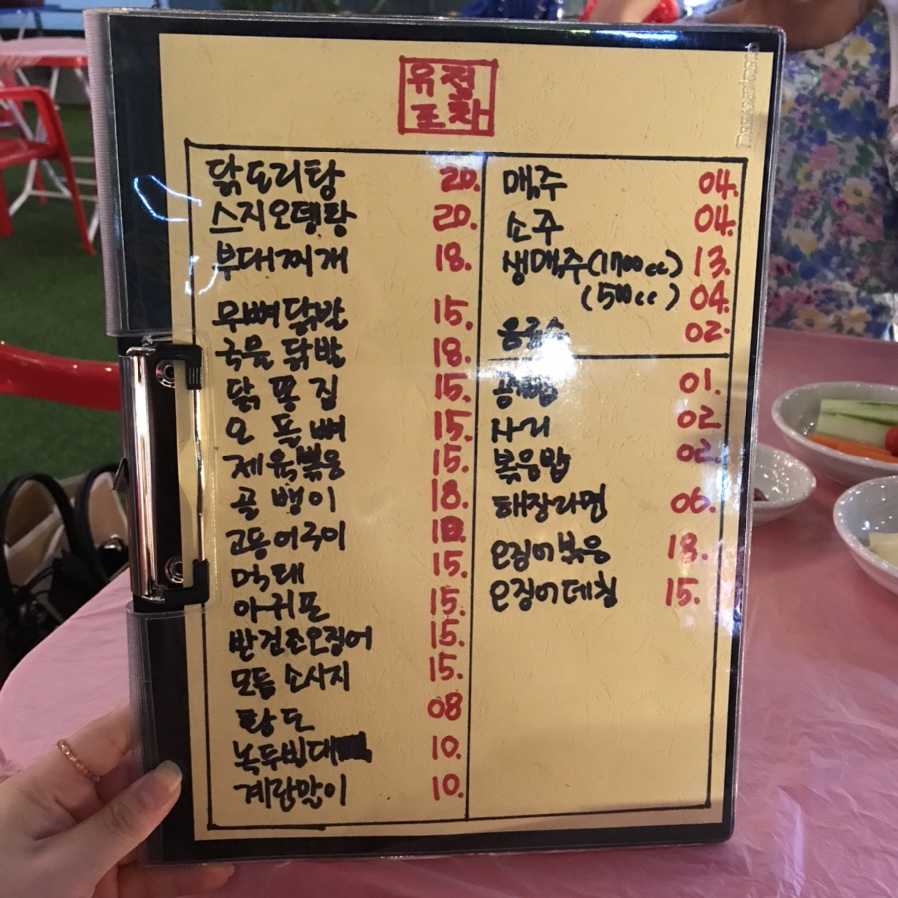 유정
포차
닭도리탕 20.
스지오뎅탕 20.
부대찌개 18.
무뼈닭발 15.
국물닭발 18.
닭똥집 15.
오돌뼈 15.
제육볶음 15.
골뱅이 18.
고등어구이
먹태 15.
아귀포 15.
반건조오징어 15.
모듬 소시지 15.
황도 08
녹두빈대
계란말이 10.
맥주 04.
소주 04.
생맥주(1700cc) 13.
(500cc) 04.
음료수 02.
공기밥 01.
사리 02
볶음밥 02.
해장라면 06.
오징어볶음 18.
오징어데침 15.